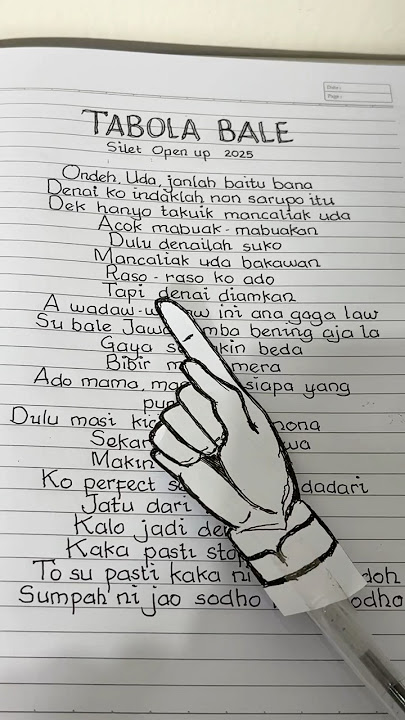 Date:
Page:
TABOLA BALE
Silet Open up 2025
Ondeh, Uda, janlah baitu bana
Denai ko indaklah nan sarupo itu
Dek hanyo takuik mancaliak uda
Acok mabuak-mabuakan
Dulu denailah suko
Mancaliak uda bakawan
Raso-raso ko ado
Tapi denai diamkan
A wadaw-w w ini ana gaga law
Su bale Jawa mba bening aja la
Gaya s kin beda
Bibir m mera
Ado mama, ma siapa yang
pu
Dulu masi ki nona
Sekar wa
Makin
Ko perfect s dadari
Jatu dari
Kalo jadi de
Kaka pasti sto
To su pasti kaka ni doh
Sumpah ni jao sodho odho